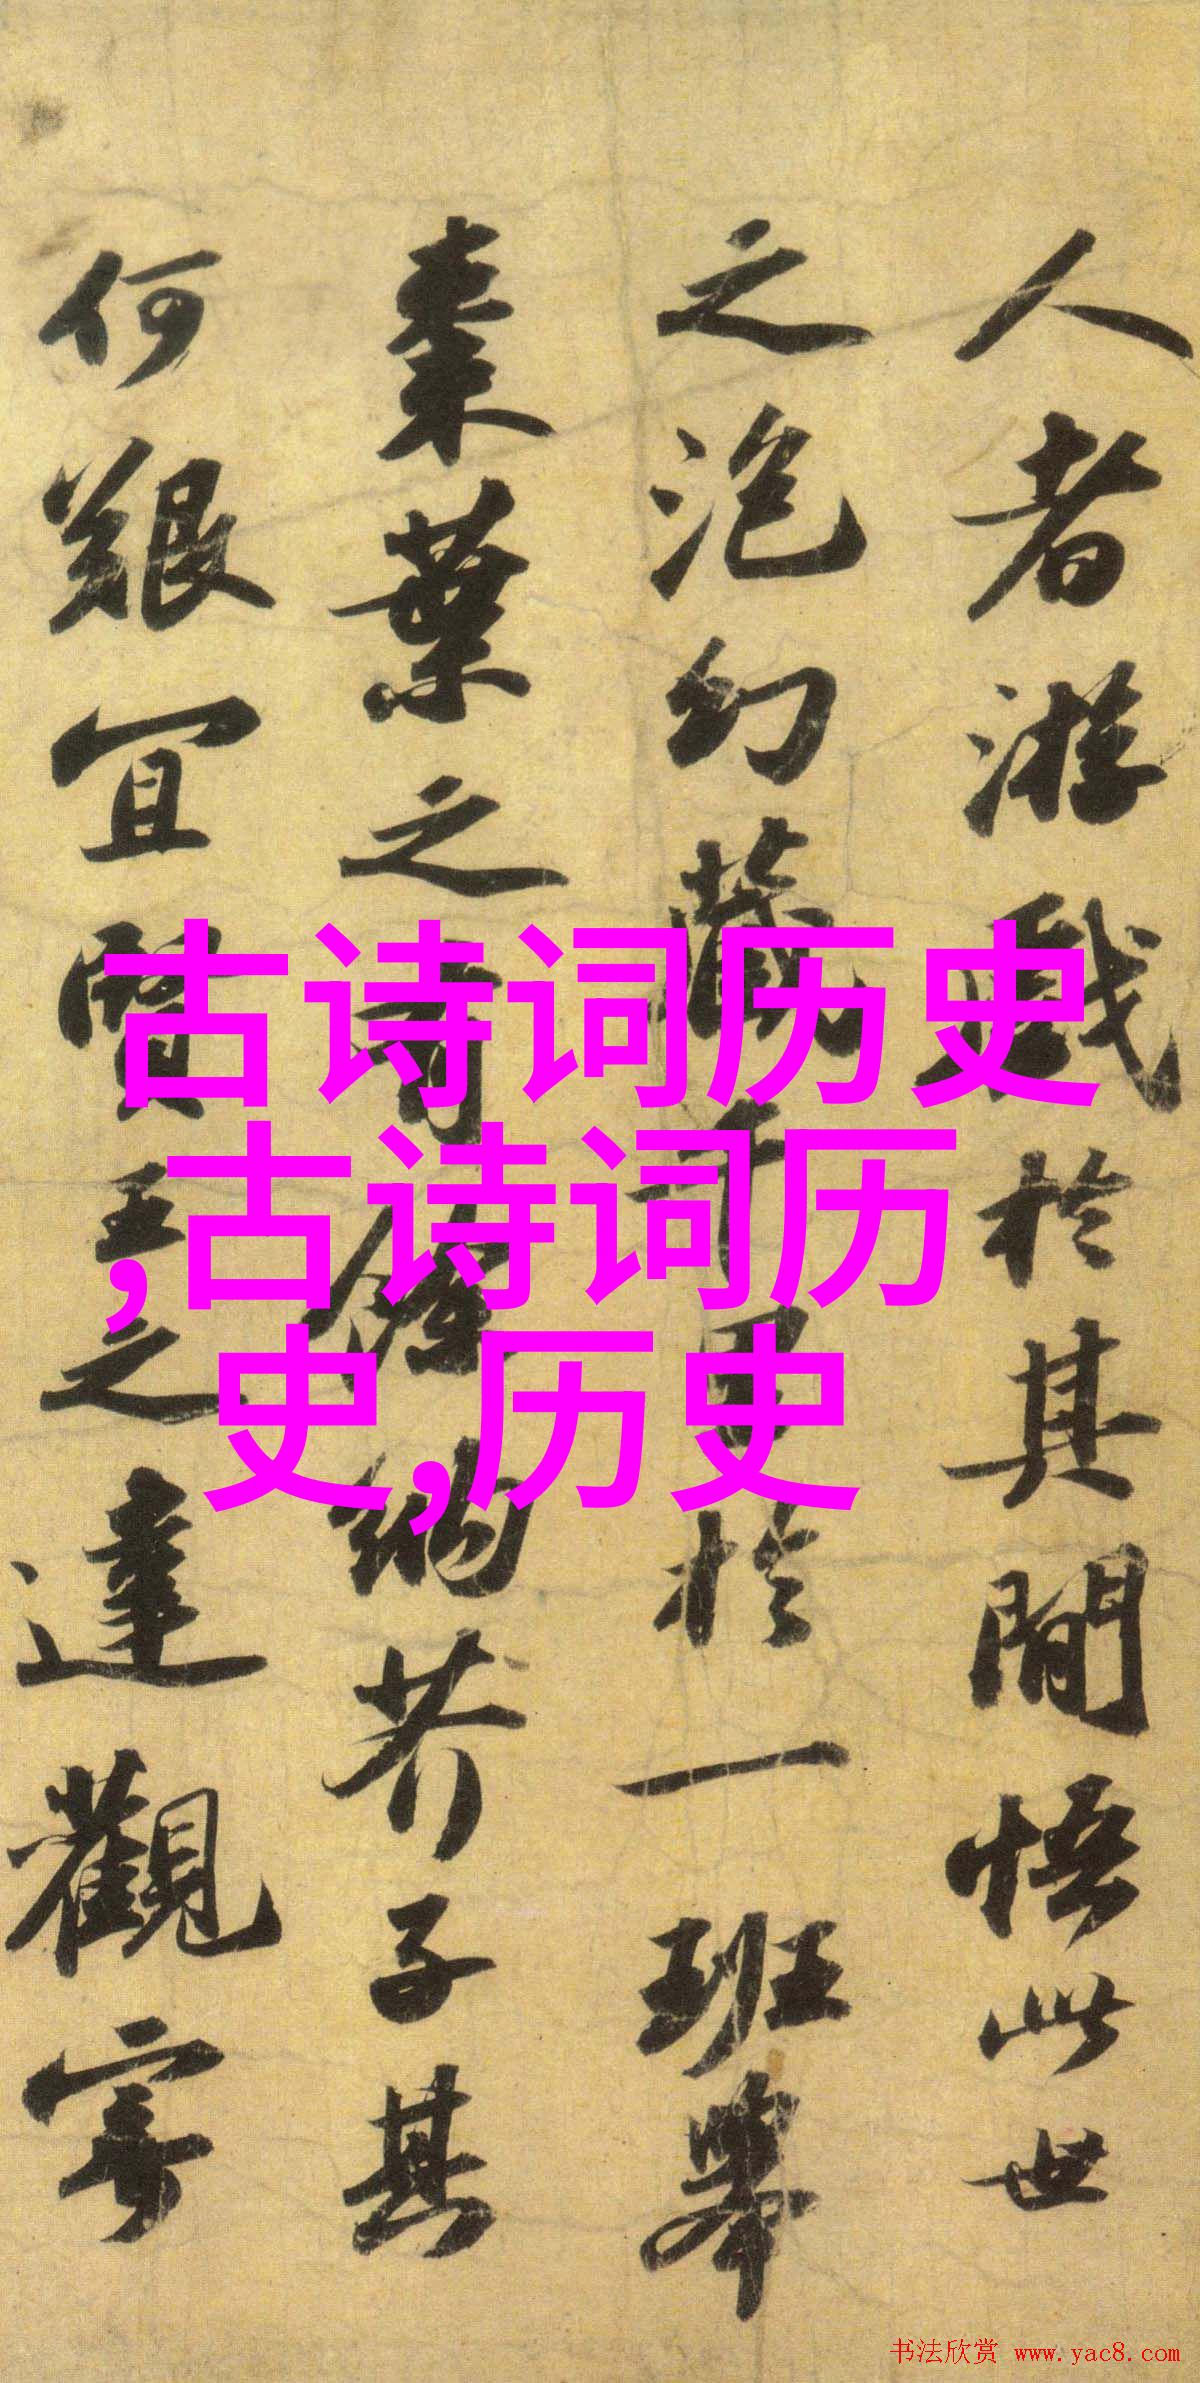 人者游戲於其間悟此世
之泡幻藏千里於一班舉
棗葉之有餘納芥子其
何艱宜賢王之達觀寄
古诗词历史
,古诗词历
史,历史
书法欣赏 www.yac8.com